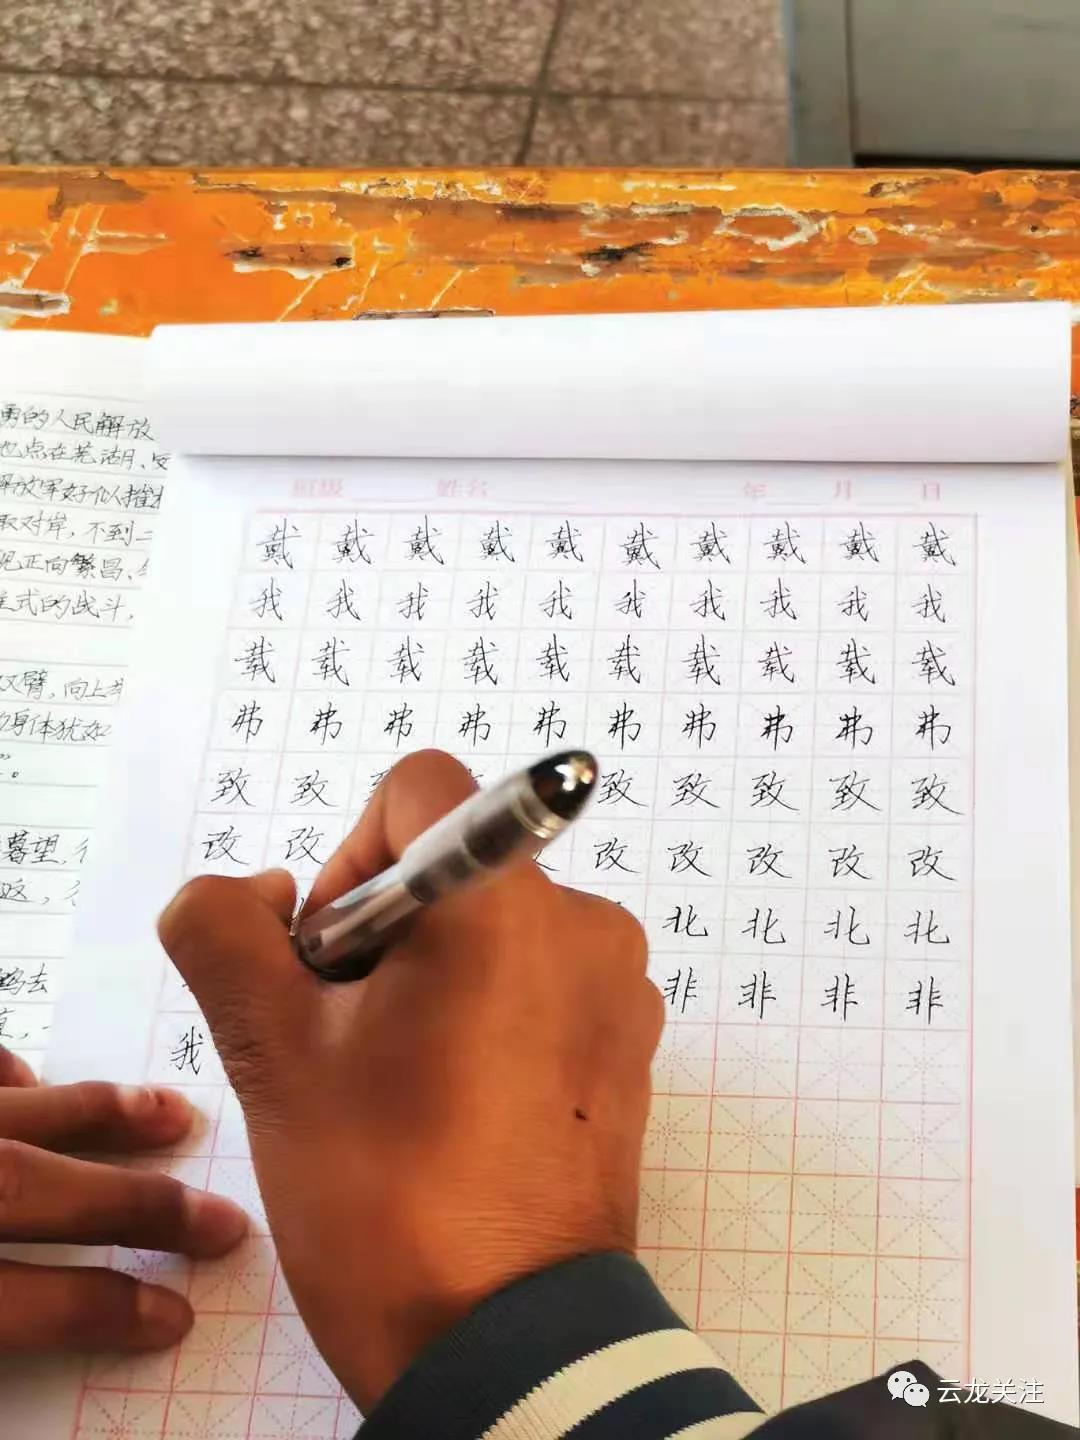 勇的人民解放
也点在芜湖、安
解放军好似摧枯
取对岸，不到二
现正向繁昌、
式的战斗，
双臂，向上
的身体犹如
”。
暮望，
返，
鸡去
直，一
班级 姓名 年 月 日
戴 戴 戴 戴 戴 戴 戴 戴 戴 戴
我 我 我 我 我 我 我 我 我 我
载 载 载 载 载 载 载 载 载 载
弗 弗 弗 弗 弗 弗 弗 弗 弗 弗
致 致 致 致 致 致 致
改 改 改 改 改 改 改
北 北 北 北
非 非 非 非
我
云龙关注